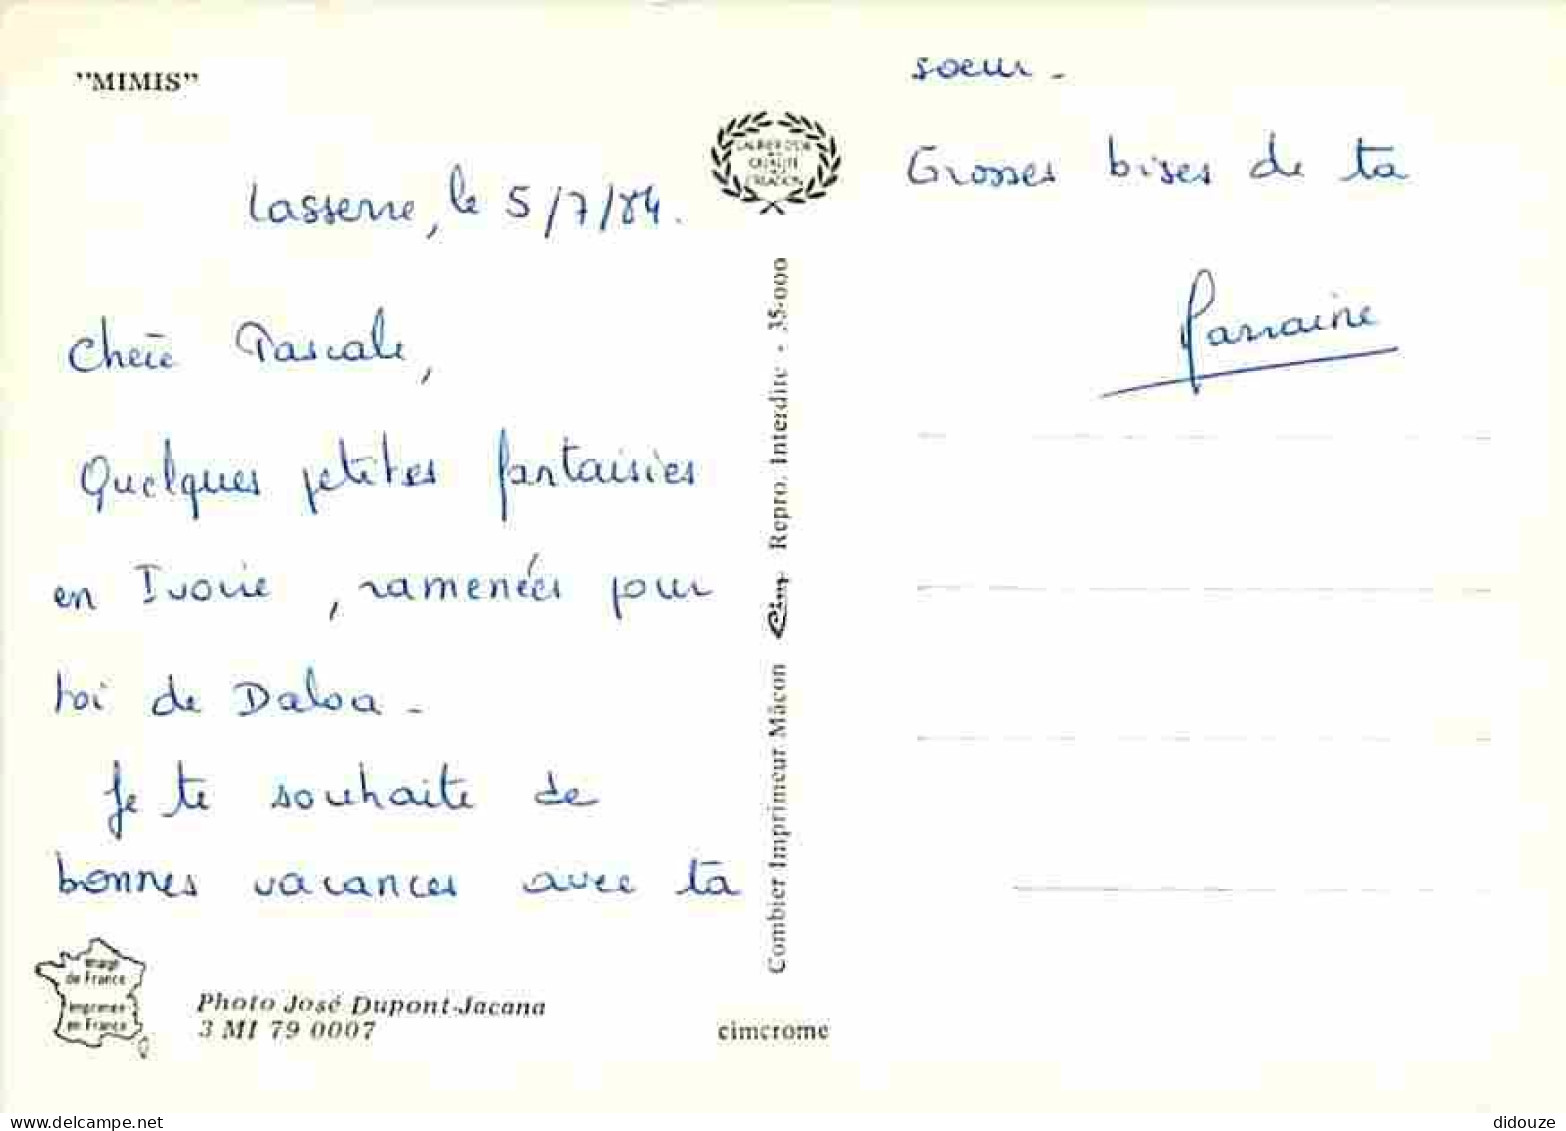 "MIMIS"
Lasserre, le 5/7/84.
Chère Pascale,
Quelques petites fantaisies
en Ivoire, ramenées pour
toi de Daloa -
Je te souhaite de
bonnes vacances avec ta
soeur -
Grosses bises de ta
Marraine
LAURIER D'OR
QUALITÉ
CRÉATION
Combier Imprimeur Mâcon Cim Repro. Interdite - 35-000
Image
de France
Imprimée
en France
Photo José Dupont-Jacana
3 MI 79 0007
cimcrome
delcampe.net
didouze